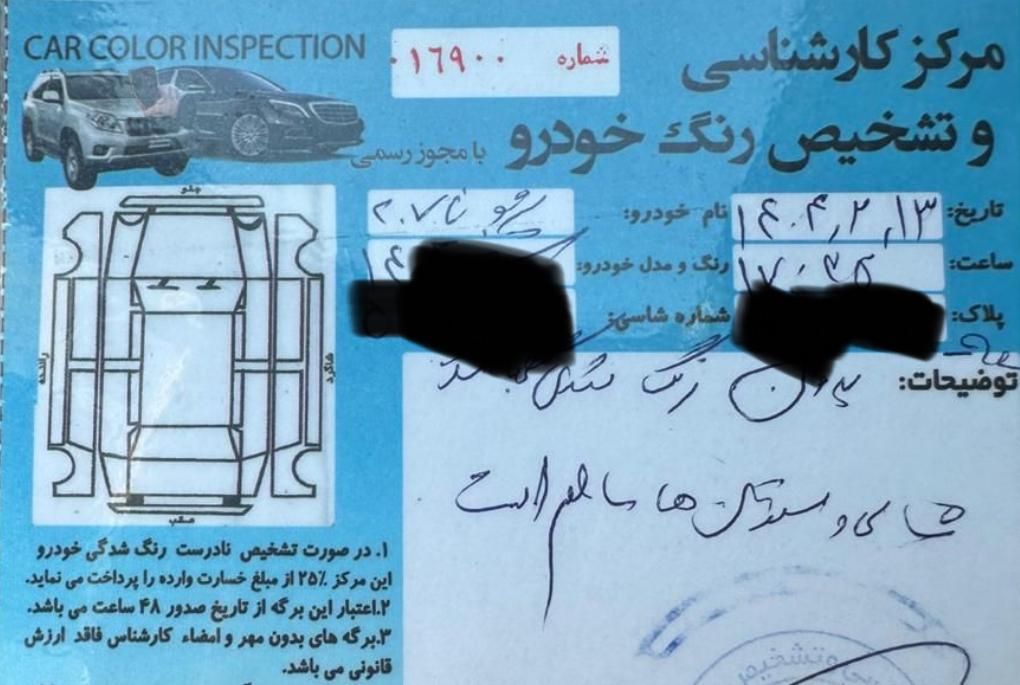 CAR COLOR INSPECTION
شماره ۰۱۶۹۰۰
مرکز کارشناسی
و تشخیص رنگ خودرو با مجوز رسمی
تاریخ: ۱۴۰۴,۲,۱۳ نام خودرو: پژو ۲۰۷
ساعت: ۱۷:۳۵ رنگ و مدل خودرو: ۱۴
پلاک: شماره شاسی:
توضیحات: بدون رنگ میباشد
شاسی و ستون ها سالم است
جلو
راننده
شاگرد
عقب
۱. در صورت تشخیص نادرست رنگ شدگی خودرو
این مرکز ۲۵٪ از مبلغ خسارت وارده را پرداخت می نماید.
۲.اعتبار این برگه از تاریخ صدور ۴۸ ساعت می باشد.
۳.برگه های بدون مهر و امضاء کارشناس فاقد ارزش
قانونی می باشد.